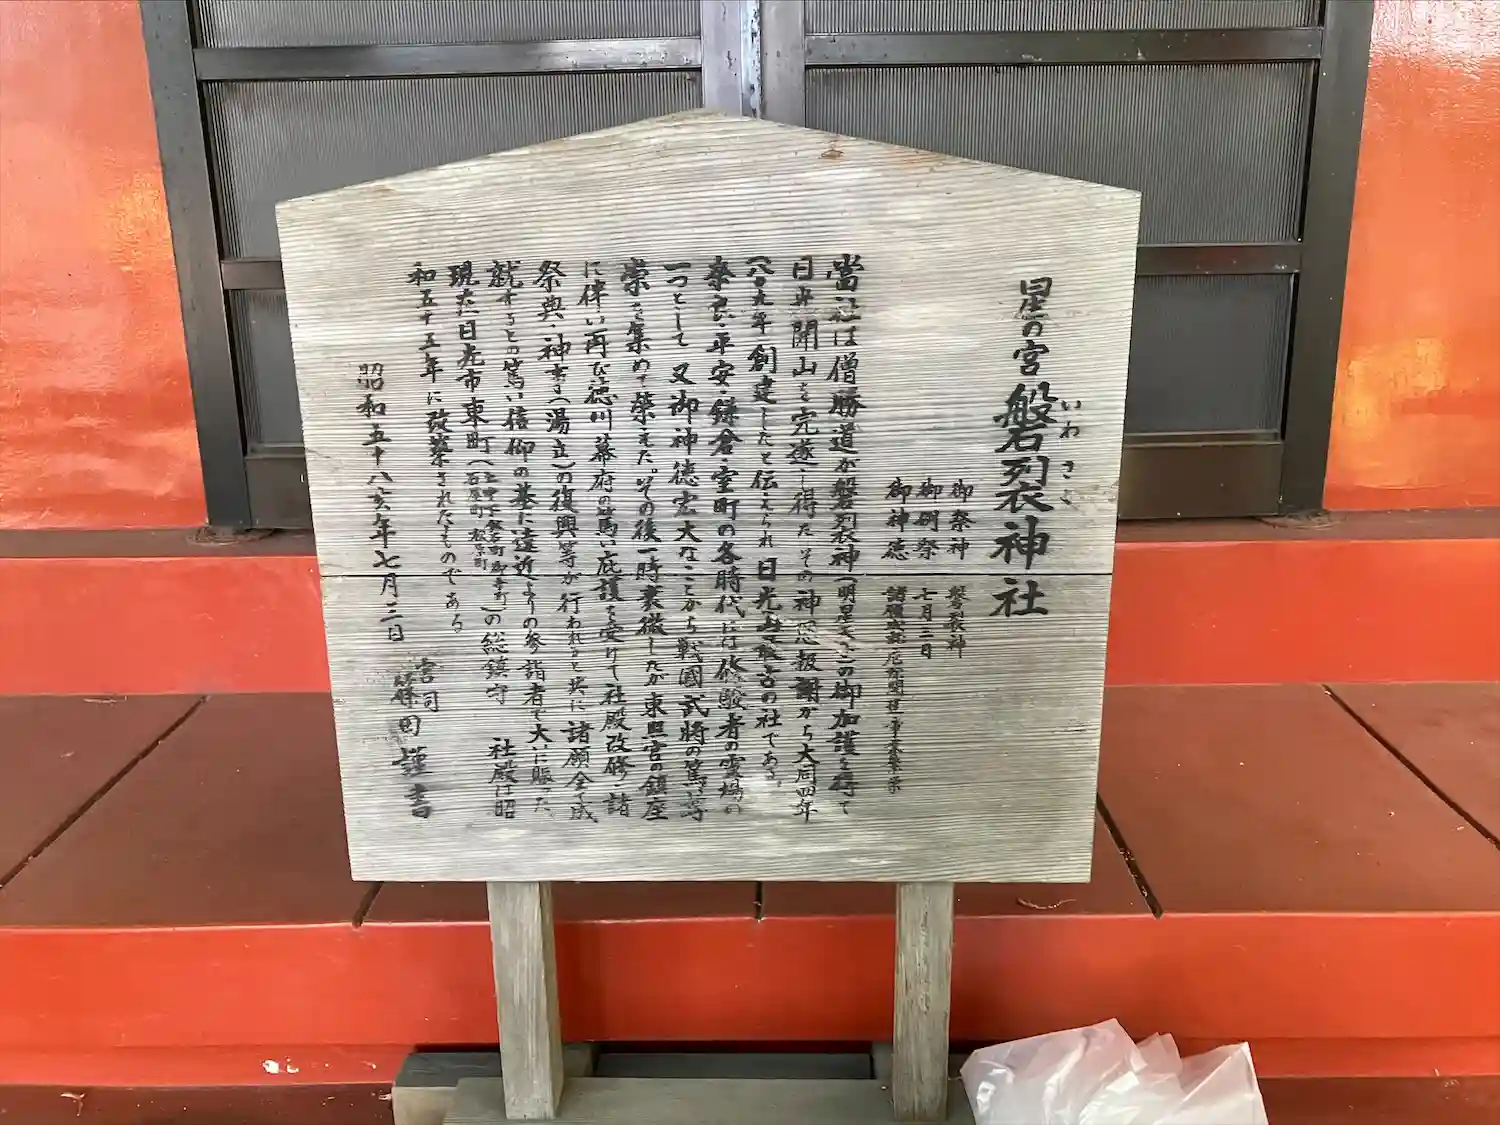 星の宮 磐列衣神社
いわ さく
御祭神 磐裂神
御例祭 七月三日
御神徳 諸願成就
當社は僧勝道が磐裂神(明星天)この御加護を得て
日光開山を完遂し得たその神恩報謝から大同四年
(八〇九年)創建したと伝えられ 日光山最古の社である。
奈良・平安・鎌倉・室町の各時代には修験者の霊場の
一つとして 又御神徳宏大なことから戦國武将の篤い
崇を集めて榮えた。その後一時衰微したが東照宮の鎮座
に伴い再び徳川幕府の篤い庇護を受けて社殿改修・諸
祭典・神事(湯立)の復興等が行われると共に諸願全て成
就するとの篤い信仰の基に遠近よりの参詣者で大いに賑った。
現在日光市東町(石屋町 松原町 御幸町)の総鎮守 社殿は昭
和五十五年に改築されたものである
昭和五十八亥年七月三日
宮司
篠田 謹書